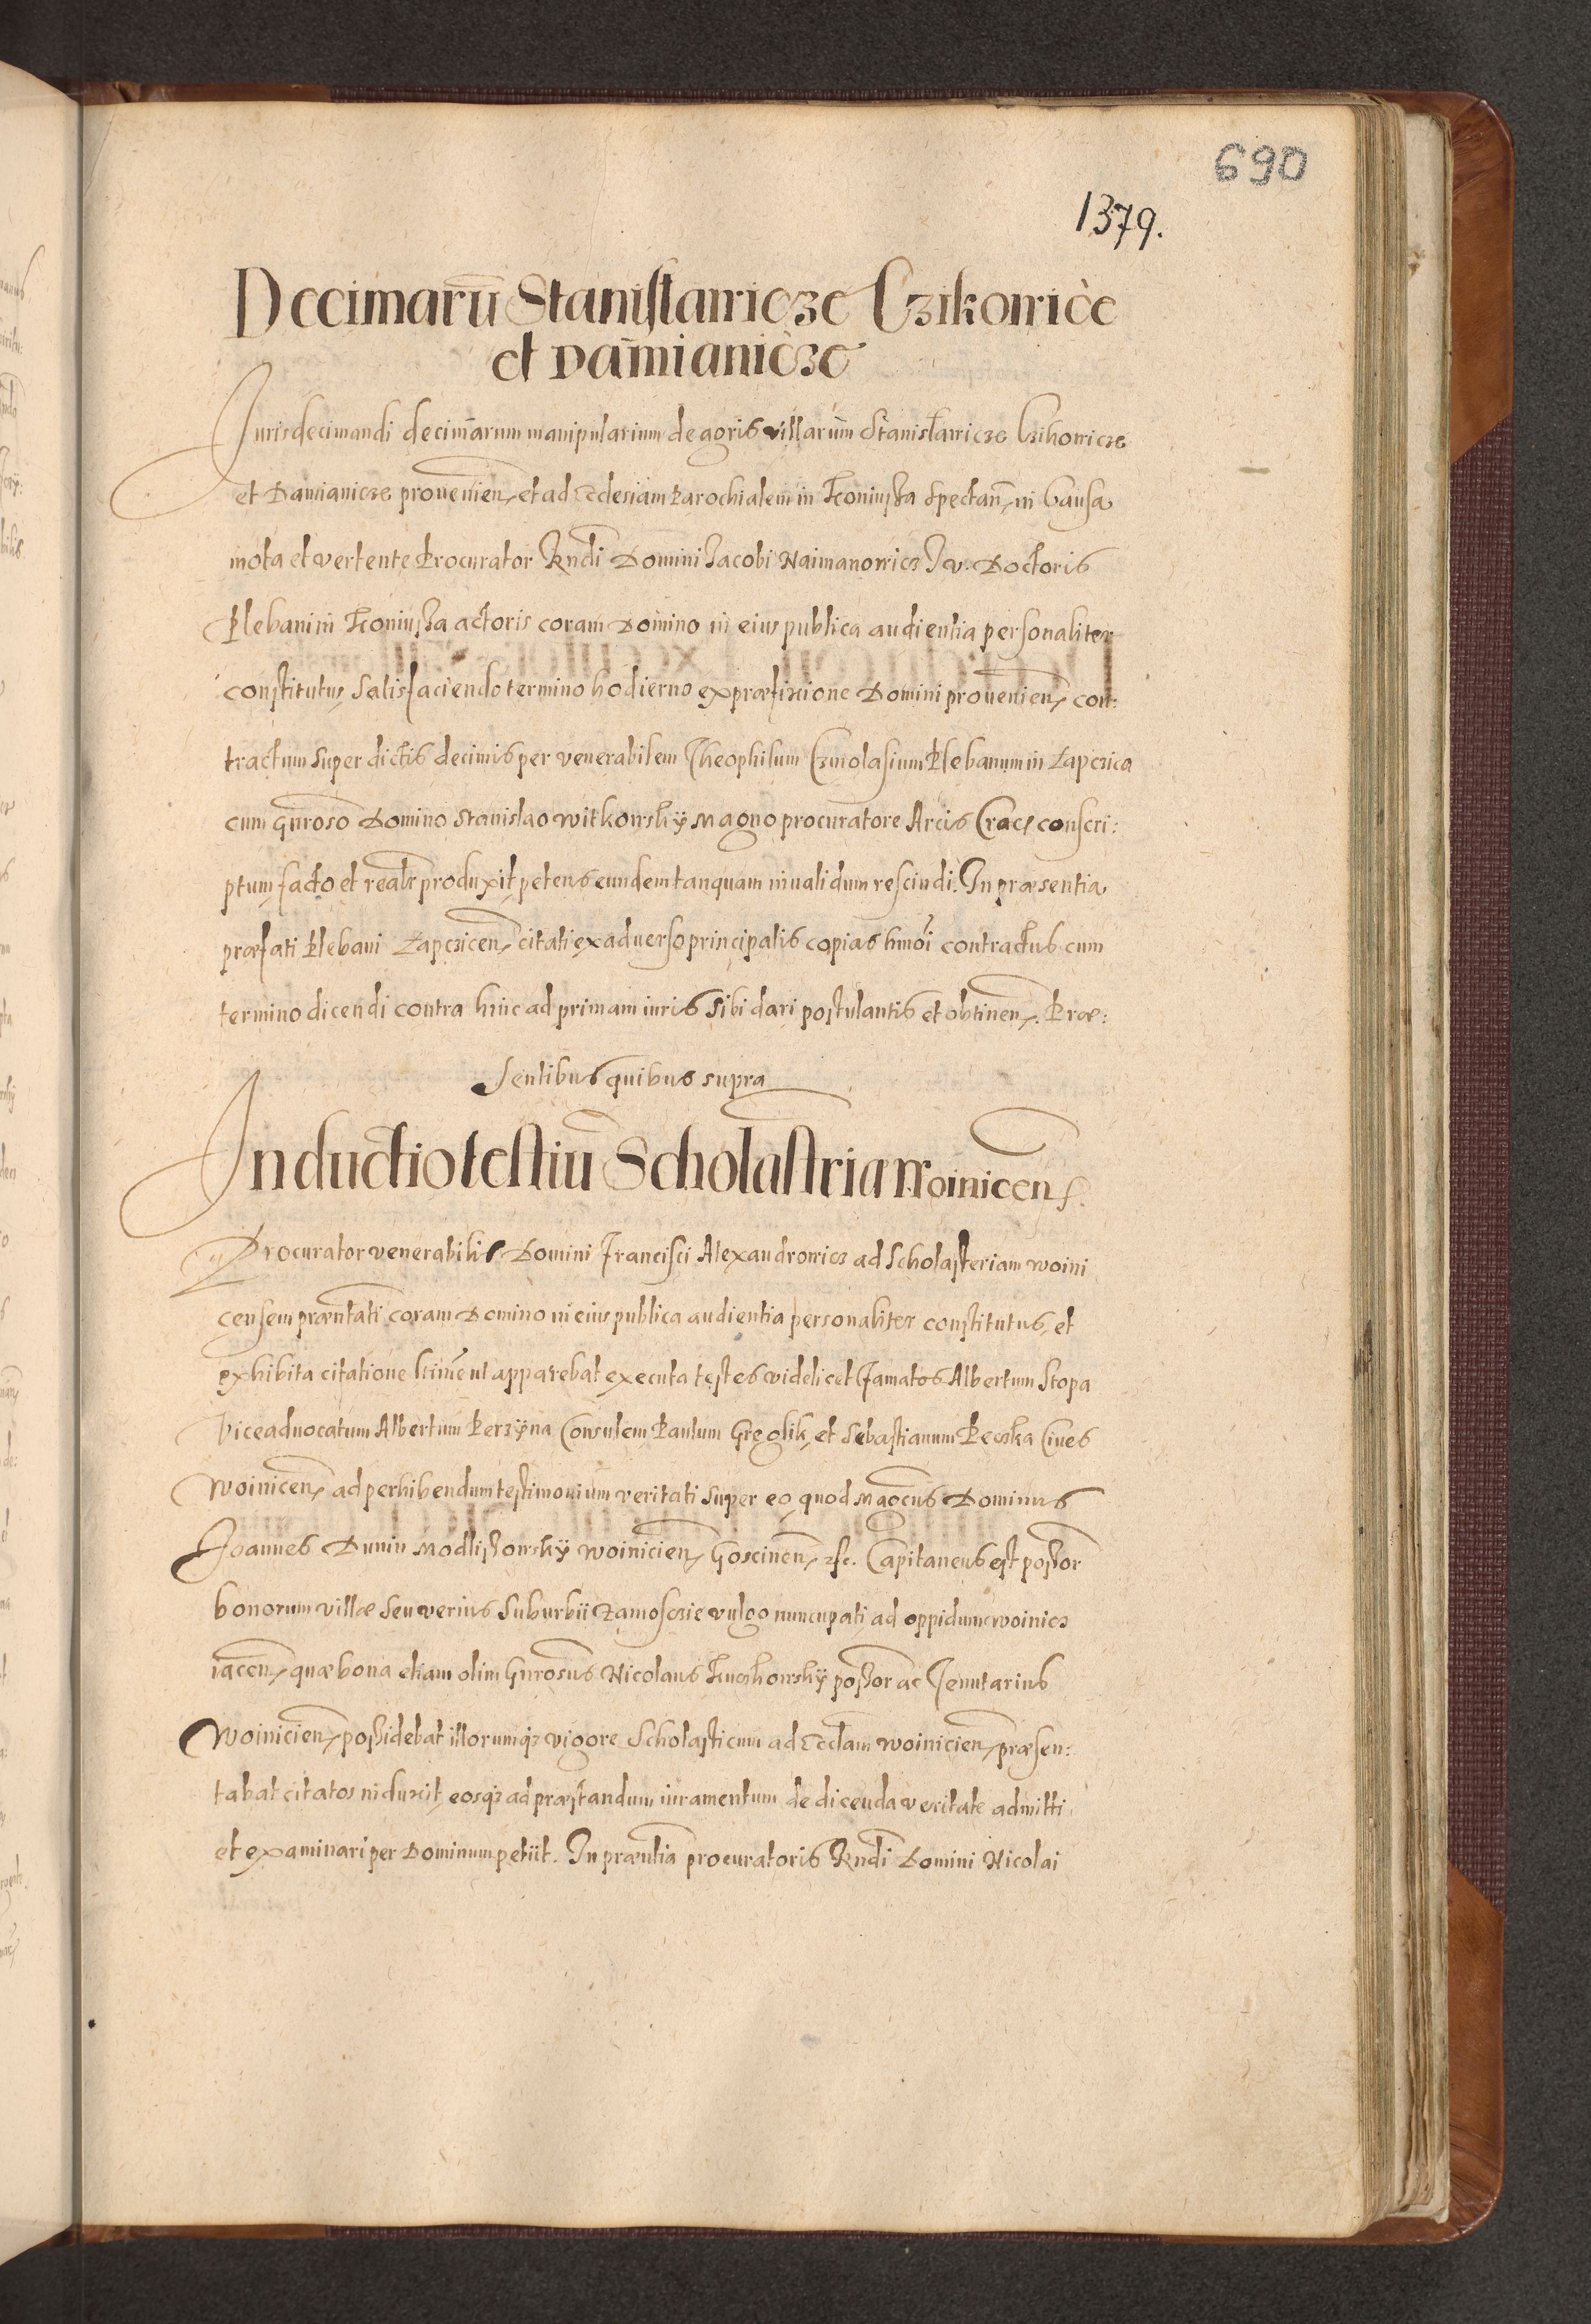 690
1379.
Decimarū Stanislawicze Czikowicze
et Damianicze
Juris decimandi decimarum manipularium de agris villarum Stanislawicze Czikowicze
et Damianicze provenien, et ad Ecclesiam Parochialem in Koniusza spectan, in Causa
mota et vertente Procurator Rndi Domini Jacobi Naimanowicz J. V. Doctoris
Plebani in Koniusza actoris coram Domino in eius publica audientia personaliter
constitutus satisfaciendo termino hodierno ex præfixione Domini provenien, con:
tractum super dictis decimis per venerabilem Theophilum Plebanum in Lapczica
cum Gnroso Domino Stanislao Witkowsky Magno procuratore Arcis Crac conscri:
ptum facto et realr produxit petens eundem tanquam invalidum rescindi. In præsentia
præfati Plebani Lapczicen, citati ex adverso principalis copias hmoi contractus cum
termino dicendi contra hinc ad primam iuris sibi dari postulantis et obtinen, Præ:
sentibus quibus supra
Inductio testiū Scholastria Woinicens.
Procurator venerabilis Domini Francisci Alexandrowicz ad Scholasteriam Woini
censem præntati coram Domino in eius publica audientia personaliter constitutus, et
exhibita citatione ut apparebat executa testes videlicet famatos Albertum Stopa
Viceadvocatum Albertum Perzyna Consulem Paulum Greglik, et Sebastianum Peczka Cives
Woinicen, ad perhibendum testimonium veritati super eo quod Magcus Dominus
Joannes Dunin Modliszowsky Woinicien, Goscinen, etc. Capitaneus est possor
bonorum villæ seu verius suburbii Zamosczie vulgo nuncupati ad oppidum Woinicz
iacen, quæ bona etiam olim Gnrosus Nicolaus possor ac Tenutarius
Woinicien, possidebat illorumqz vigore Scholasticum ad Ecclam Woinicien, præsen:
tabat citatos induxit, eosqz ad præstandum iuramentum de dicenda veritate admitti
et examinari per Dominum petiit. In præntia procuratoris Rndi Domini Nicolai